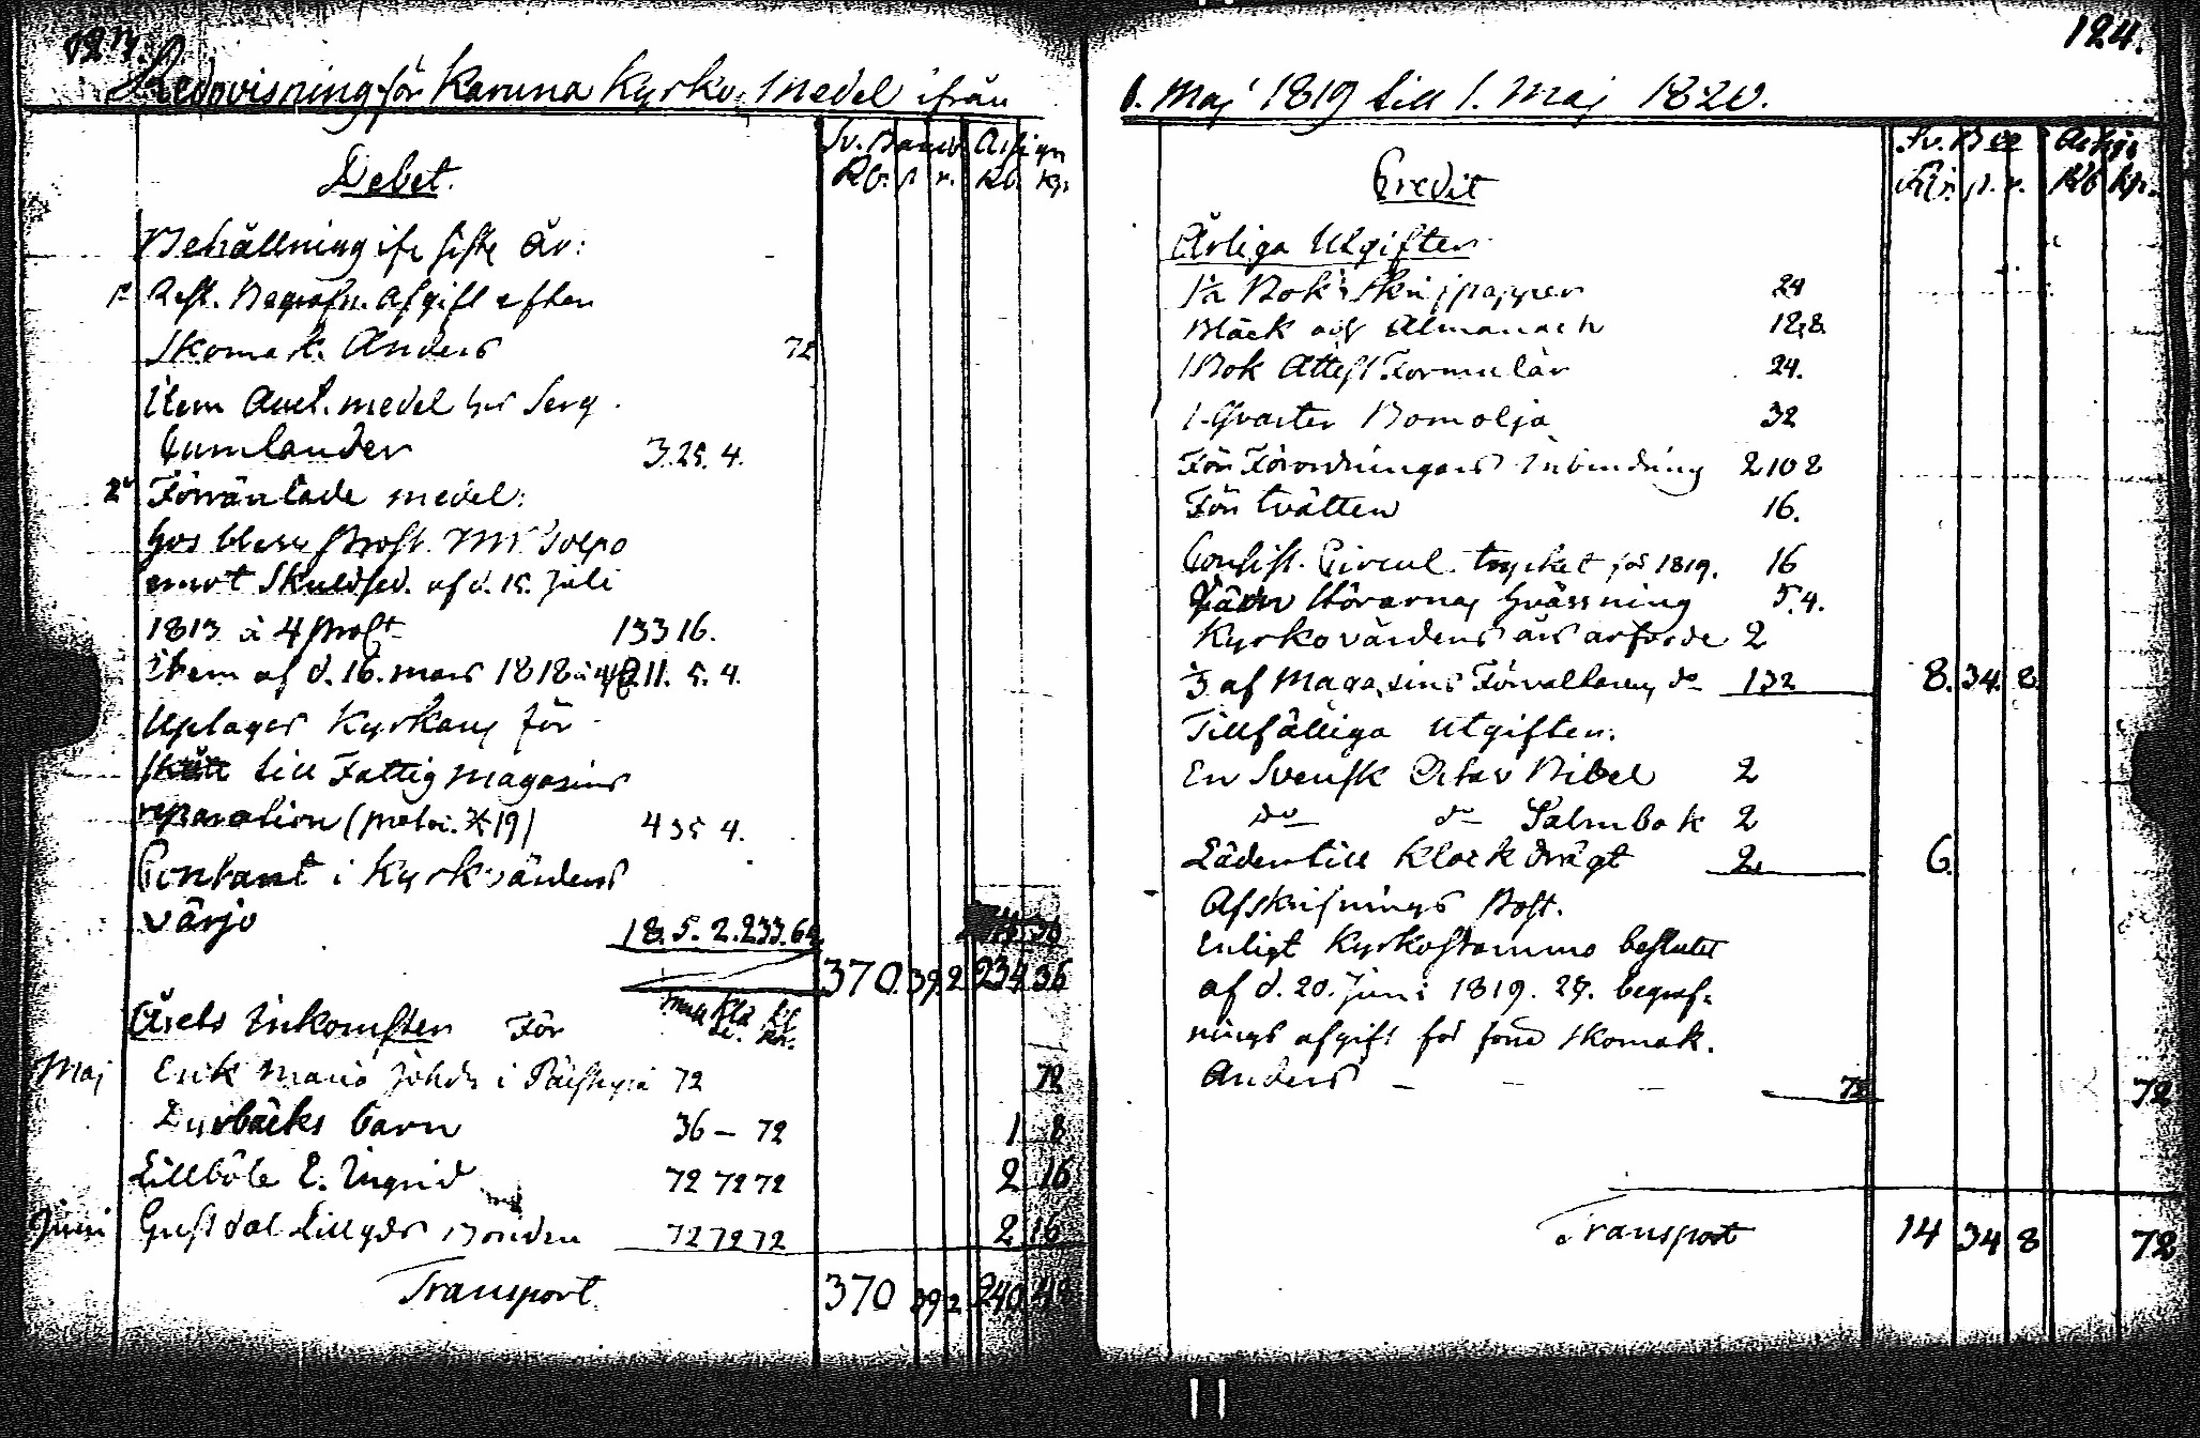 123.
Redovisning för Karuna Kyrko Medel ifrån
Sv. Banco Assign
Rb. s. r. Rb. kp.
Debet.
Behållning ifr. siste År:
1o Rest. Begrafn. Afgift efter
Skomak. Anders 72
Item Auct. medel hos Serg.
Cumlander 3.25.4.
2o Förräntade medel:
hos Prost. Mr
emot Skuldsed. af d. 15. Juli
1813 à 4 pro Ct 133 16.
item af d. 16. mars 1818 à 4 211. 5. 4.
Uplager Kyrkans för
till Fattig Magasins
reparation 4 35 4.
Contant i Kyrkovärdens
värjo 18. 5. 2. 233.64
370. 39. 2 234 36
Årets Inkomster För
Maj Erik Maria Johds i 72 72
barn 36 – 72 1 8
Lillböle E. Ingrid 72 72 72 2 16
Juni Gustdal Lillgds Bonden 72 72 72 2 16
Transport. 370 39 2 240
124.
1. Maj 1819 till 1. Maj 1820.
Sv. Bco Assign
Rb. s. r. Rb kp.
Credit
Årliga Utgifter
1½ Bok Skrifpapper 24
Bläck och Almanach 12.8.
1 Bok Attest Formulär 24.
1 Qvarter Bomolja 32
För Förordningars Inbindning 2 10 8
För tvätten 16.
Consist. Circul. trycket för 1819. 16
hvässning 5.4.
Kyrkovärdens års arfvode 2
⅓ af Magasins Förvaltarens do 1 32 8. 34. 8
Tillfälliga Utgifter.
En Svensk Octav Bibel 2
do do Psalmbok 2
Läder till Klockdrägt 2 6.
Afskrifnings Post.
Enligt Kyrkostämmo beslutet
af d. 20. Juni 1819. 29. begraf-
nings afgift för Skomak.
Anders – – – 72 72
Transport 14 34 8 72